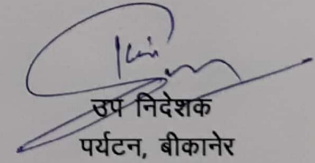 उप निदेशक
पर्यटन, बीकानेर